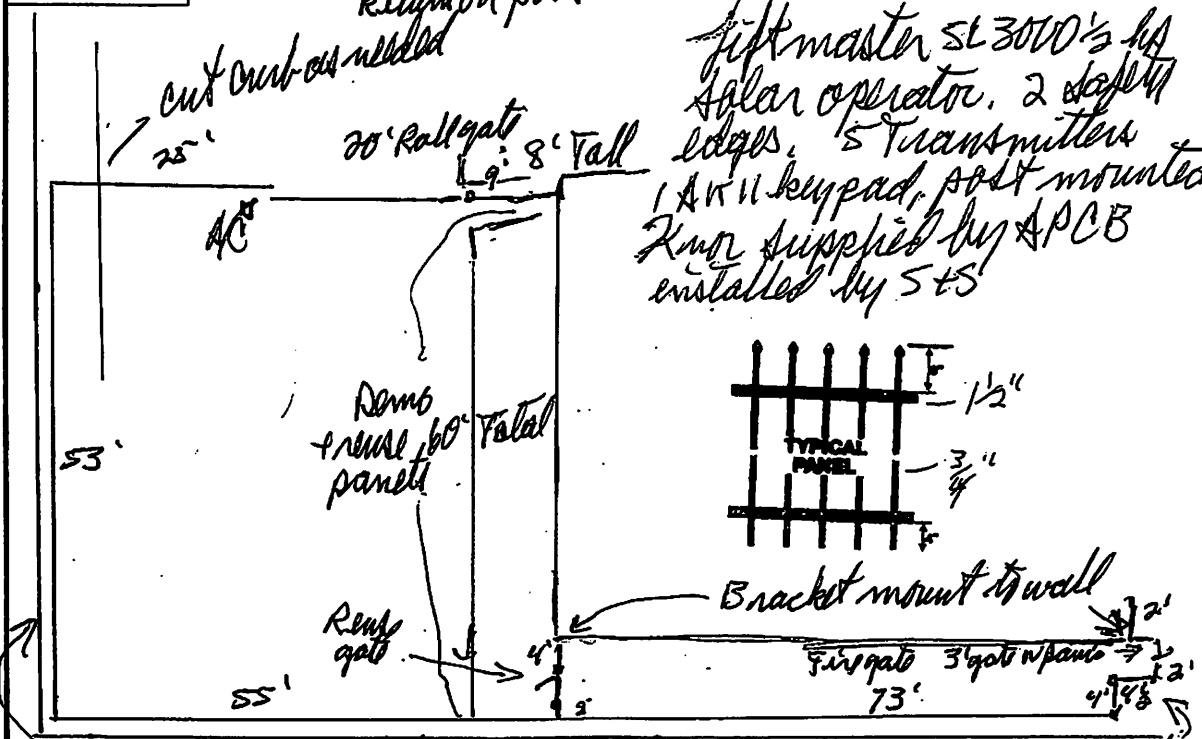 cut curb as needed
25'
20' Roll gate
9'
8' Tall
Liftmaster SL3000 1/2 hp
Solar operator. 2 safety
edges. 5 Transmitters
1 AK11 keypad, post mounted
Knox supplied by APCB
installed by S+S
AC
Demo
+ reuse 60' Total
panels
53'
1 1/2"
TYPICAL
PANEL
3/4"
Bracket mount to wall
2'
Reuse
gate
4'
Fire gate 3' gate w panic
2'
55'
73'
4'